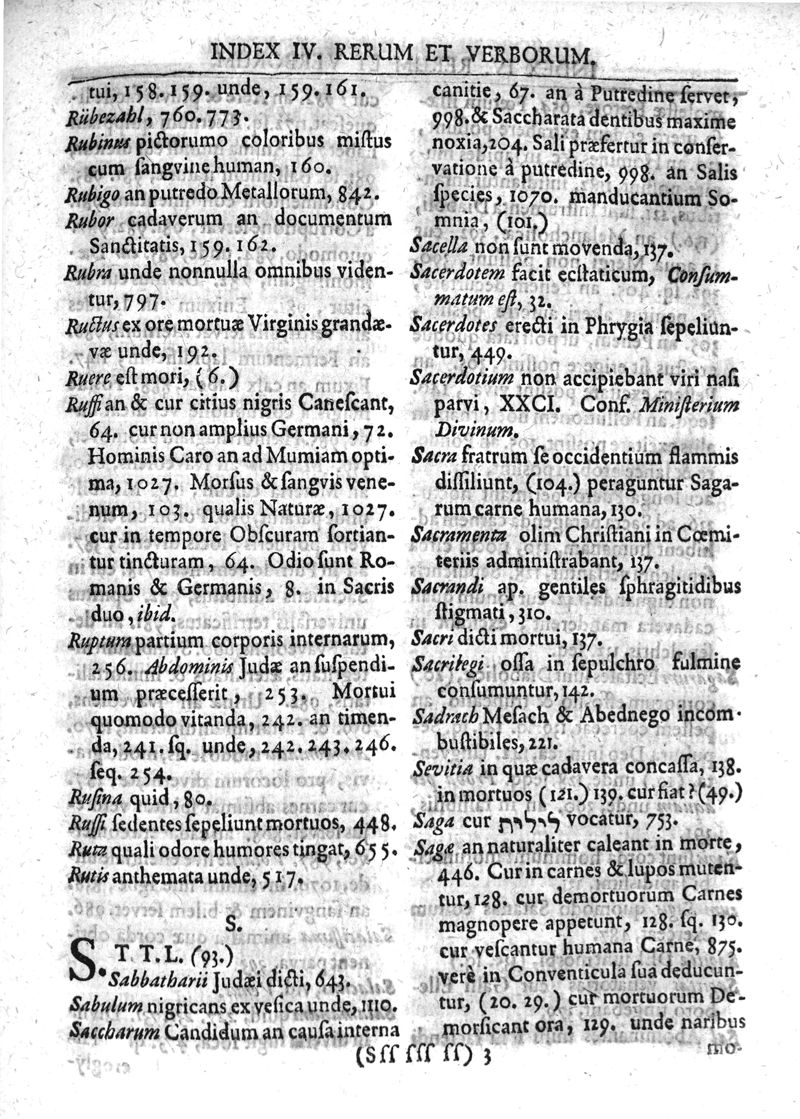 INDEX IV. RERUM ET VERBORUM.
tui, 158. 159. unde, 159. 161.
Rübezahl, 760. 773.
Rubinus pictorumo coloribus miſtus
cum ſangvine human, 160.
Rubigo an putredo Metallorum, 842.
Rubor cadaverum an documentum
Sanctitatis, 159. 162.
Rubra unde nonnulla omnibus viden-
tur, 797.
Ructus ex ore mortuæ Virginis grandæ-
væ unde, 192.
Ruere eſt mori, (6.)
Ruffi an & cur citius nigris Caneſcant,
64. cur non amplius Germani, 72.
Hominis Caro an ad Mumiam opti-
ma, 1027. Morſus & ſangvis vene-
num, 103. qualis Naturæ, 1027.
cur in tempore Obſcuram ſortian-
tur tincturam, 64. Odio ſunt Ro-
manis & Germanis, 8. in Sacris
duo, ibid.
Ruptum partium corporis internarum,
256. Abdominis Judæ an ſuſpendi-
um præceſſerit, 253. Mortui
quomodo vitanda, 242. an timen-
da, 241. ſq. unde, 242. 243. 246.
ſeq. 254.
Ruſina quid, 80.
Ruſſi ſedentes ſepeliunt mortuos, 448.
Ruta quali odore humores tingat, 655.
Rutis anthemata unde, 517.
S.
S. T. T. L. (93.)
Sabbatharii Judæi dicti, 643.
Sabulum nigricans ex veſica unde, 1110.
Saccharum Candidum an cauſa interna
canitie, 67. an à Putredine ſervet,
998. & Saccharata dentibus maxime
noxia, 204. Sali præfertur in conſer-
vatione à putredine, 998. an Salis
ſpecies, 1070. manducantium So-
mnia, (101.)
Sacella non ſunt movenda, 137.
Sacerdotem facit ecſtaticum, Conſum-
matum eſt, 32.
Sacerdotes erecti in Phrygia ſepeliun-
tur, 449.
Sacerdotium non accipiebant viri naſi
parvi, XXCI. Conf. Miniſterium
Divinum.
Sacra fratrum ſe occidentium flammis
diſſiliunt, (104.) peraguntur Saga-
rum carne humana, 130.
Sacramenta olim Chriſtiani in Cœmi-
teriis adminiſtrabant, 137.
Sacrandi ap. gentiles ſphragitidibus
ſtigmati, 310.
Sacri dicti mortui, 137.
Sacrilegi oſſa in ſepulchro fulmine
conſumuntur, 142.
Sadrach Meſach & Abednego incom-
buſtibiles, 221.
Sevitia in quæ cadavera concaſſa, 138.
in mortuos (121.) 139. cur fiat? (49.)
Saga cur לילות vocatur, 753.
Sagæ an naturaliter caleant in morte,
446. Cur in carnes & lupos muten-
tur, 128. cur demortuorum Carnes
magnopere appetunt, 128. ſq. 130.
cur veſcantur humana Carne, 875.
verè in Conventicula ſua deducun-
tur, (20. 29.) cur mortuorum De-
morſicant ora, 129. unde naribus
(Sſſ ſſſ ſſ) 3
mo-